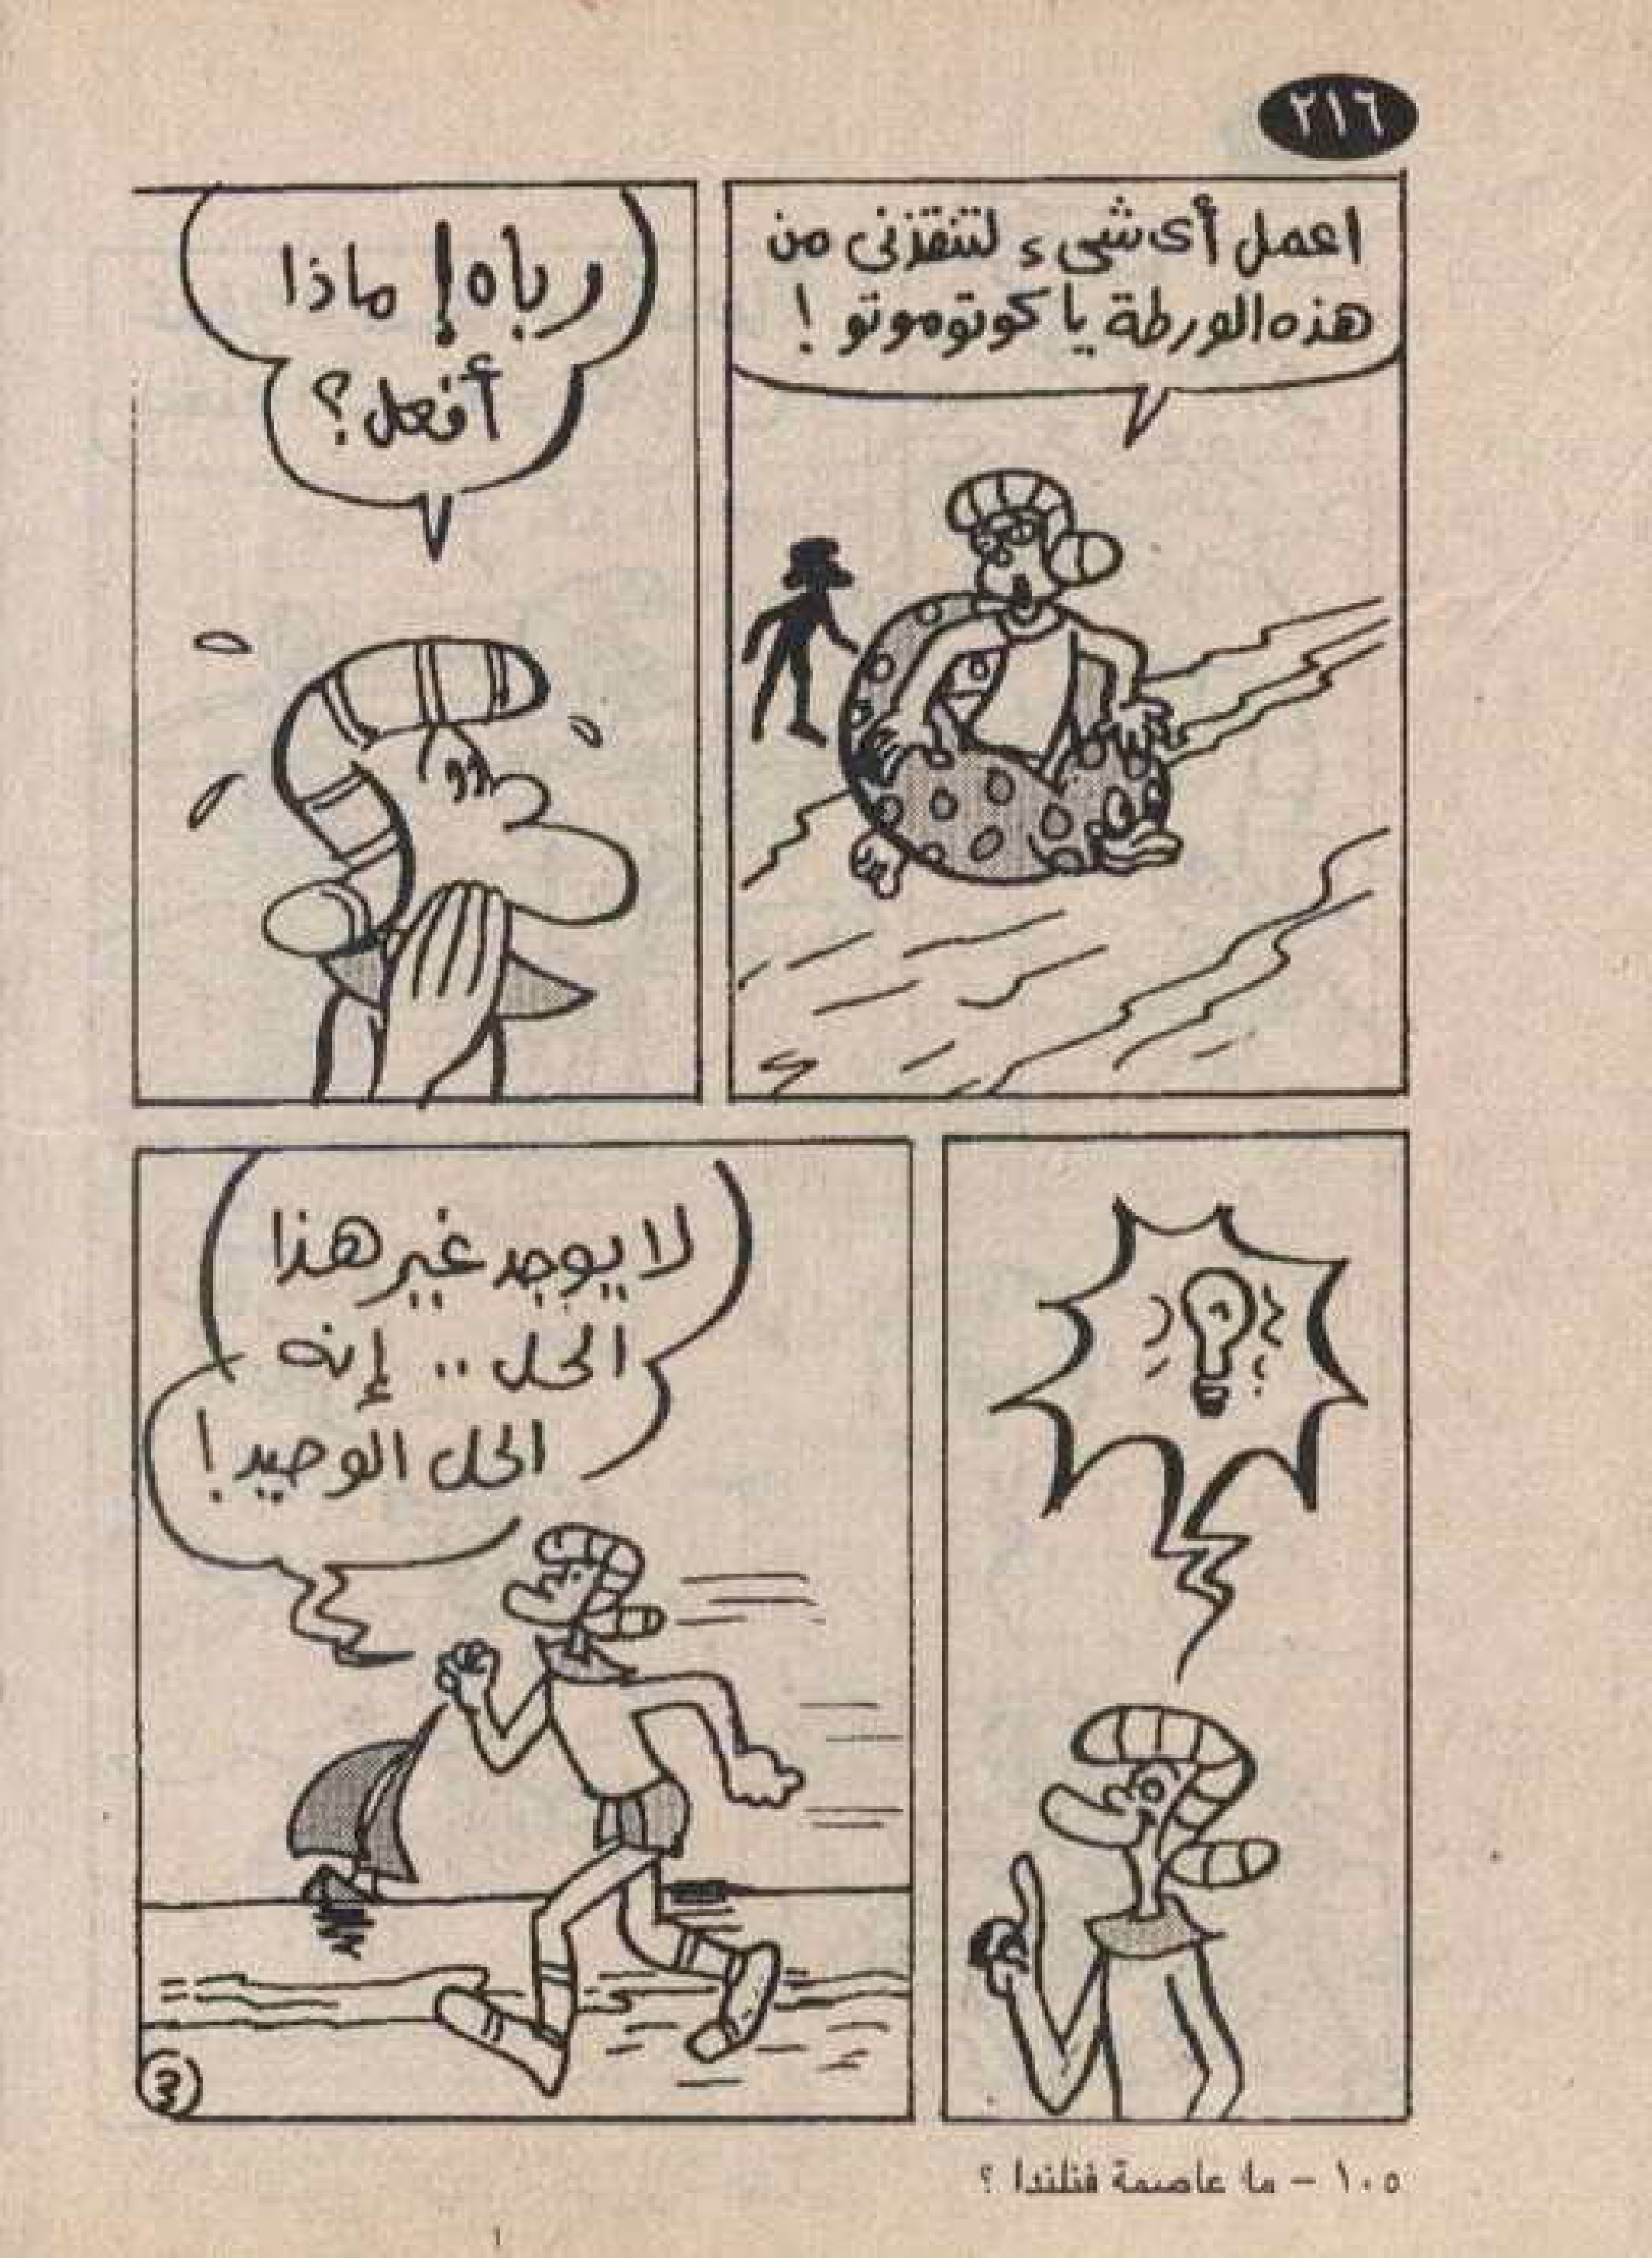 ٢١٦
اعمل أى شىء لتنقذنى من
هذه الورطة يا كوتوموتو !
رباه! ماذا
أفعل؟
لا يوجد غير هذا
الحل .. إنه
الحل الوحيد!
3
١٠٥ - ما عاصمة فنلندا ؟